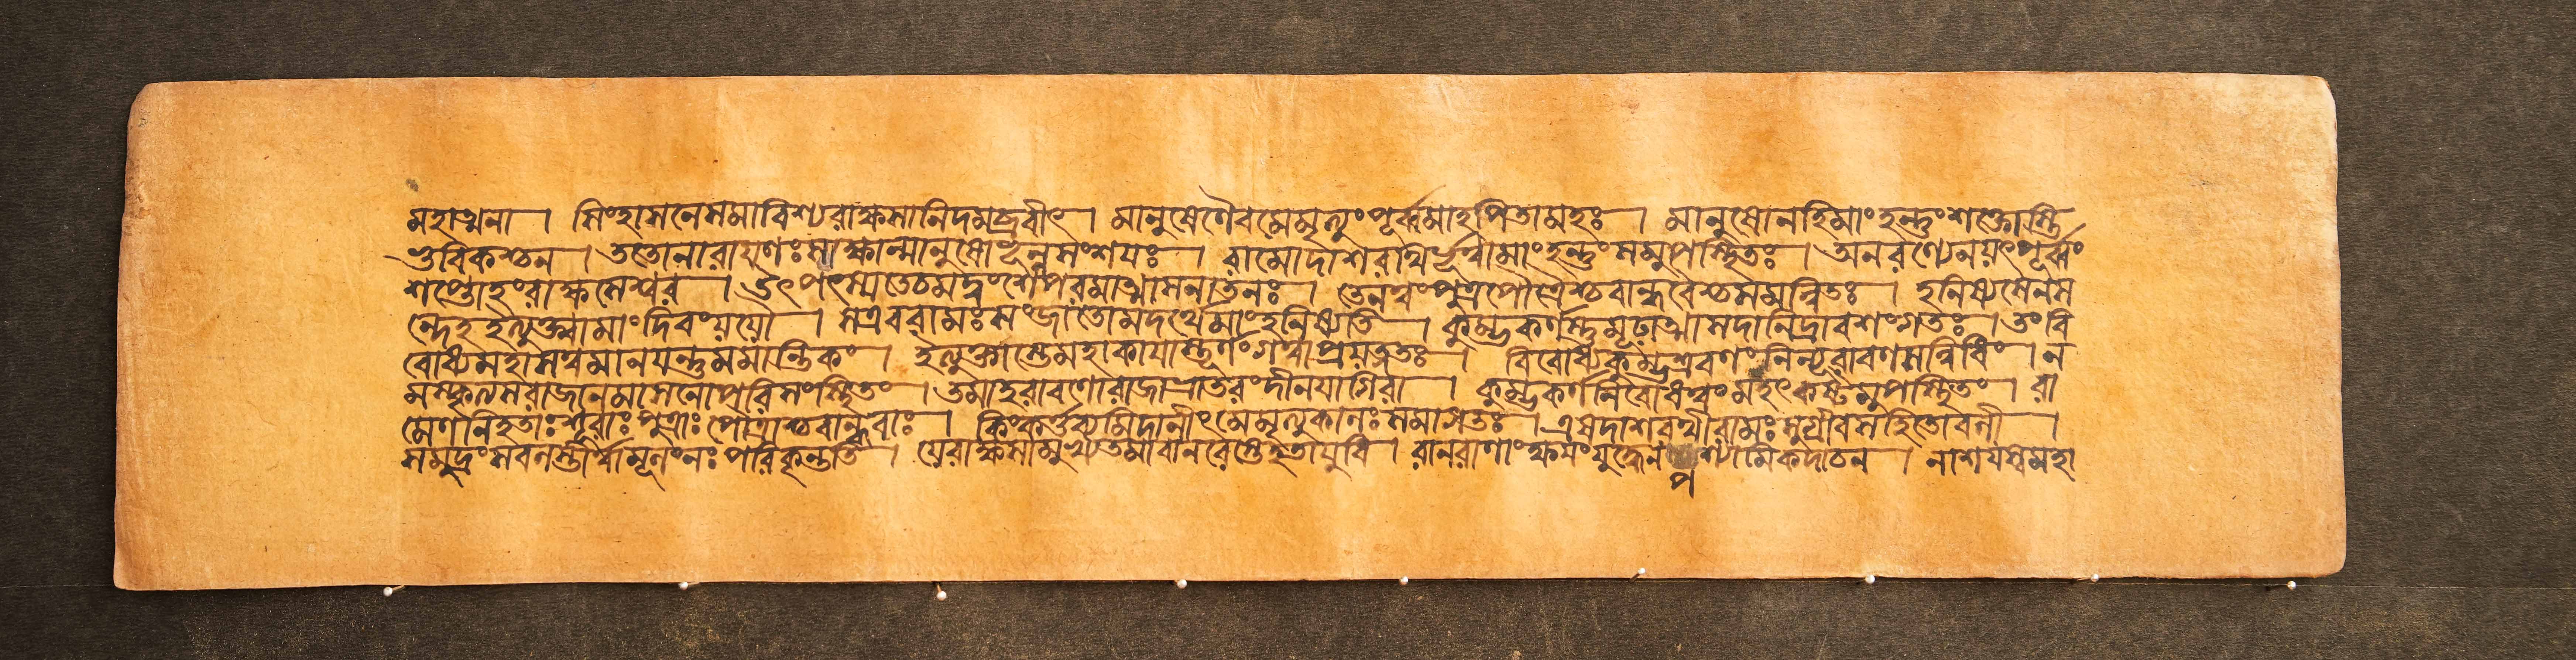 মহাত্মনা । সিংহাসনেসমাবিশ্যরাক্ষসানিদমব্রবীৎ । মানুষেণৈবমেমৃত্যুংপূর্ব্বমাহপিতামহঃ । মানুষোনহিমাংহন্তুংশক্তোস্তি
ভুবিকশ্চন । ততোনারায়ণঃসাক্ষান্মানুষোভূন্নসংশয়ঃ । রামোদাশরথির্ভূত্বামাংহন্তুংসমুপস্থিতঃ । অনরণ্যেনয়ৎপূর্ব্বং
শপ্তোহংরাক্ষসেশ্বর । উৎপৎস্যতেচমদ্বংশেপরমাত্মাসনাতনঃ । তেনত্বংপুত্রপৌত্রৈশ্চবান্ধবৈশ্চসমন্বিতঃ । হনিষ্যসেনস
ন্দেহইত্যুক্ত্বামাংদিবংযযৌ । সএবরামঃসংজাতোমদর্থেমাংহনিষ্যতি । কুম্ভকর্ণস্তুমূঢাত্মাসদানিদ্রাবশংগতঃ । তংবি
বোধ্যমহাসত্বমানয়ন্তুমমান্তিকং । ইত্যুক্তাস্তেমহাকায়াস্তূর্ণংগত্বাপ্রযত্নতঃ । বিবোধ্যকুম্ভশ্রবণংনিন্যূরাবণসন্নিধিং । ন
মস্কৃত্যসরাজানমাসনোপরিসংস্থিতং । তমাহরাবণোরাজাভ্রাতরংদীনয়াগিরা । কুম্ভকর্ণনিবোধত্বংমহৎকষ্টমুপস্থিতং । রা
মেণনিহতাঃশূরাঃপুত্রাঃপৌত্রাশ্চবান্ধবাঃ । কিংকর্ত্তব্যমিদানীংমেমৃত্যুকালঃসমাগতঃ । এষদাশরর্থীরামঃসুগ্রীবসহিতোবলী ।
সমুদ্রংসবলস্তীর্ত্বামূলংনঃপরিকৃন্ততি । য়েরাক্ষসামুখ্যতমাবানরৈস্তেহতাযুধি । বানরাণাংক্ষয়ংযুদ্ধেনপশ্যামিকদাচন । নাশয়স্বমহা
প